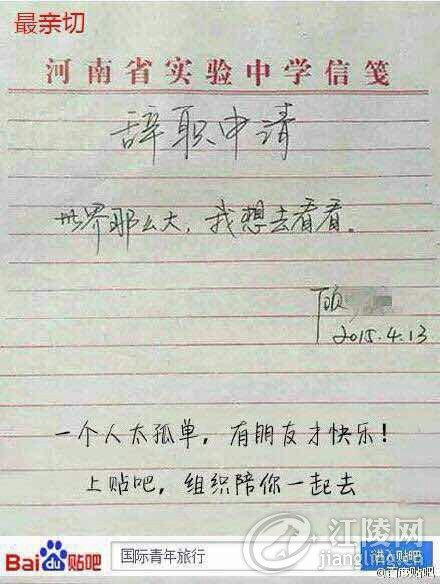 最亲切
河南省实验中学信笺
辞职申请
世界那么大，我想去看看。
顾
2015.4.13
一个人太孤单，有朋友才快乐！
上贴吧，组织陪你一起去
Bai du 贴吧
国际青年旅行
进入贴吧
江陵网
jiangling